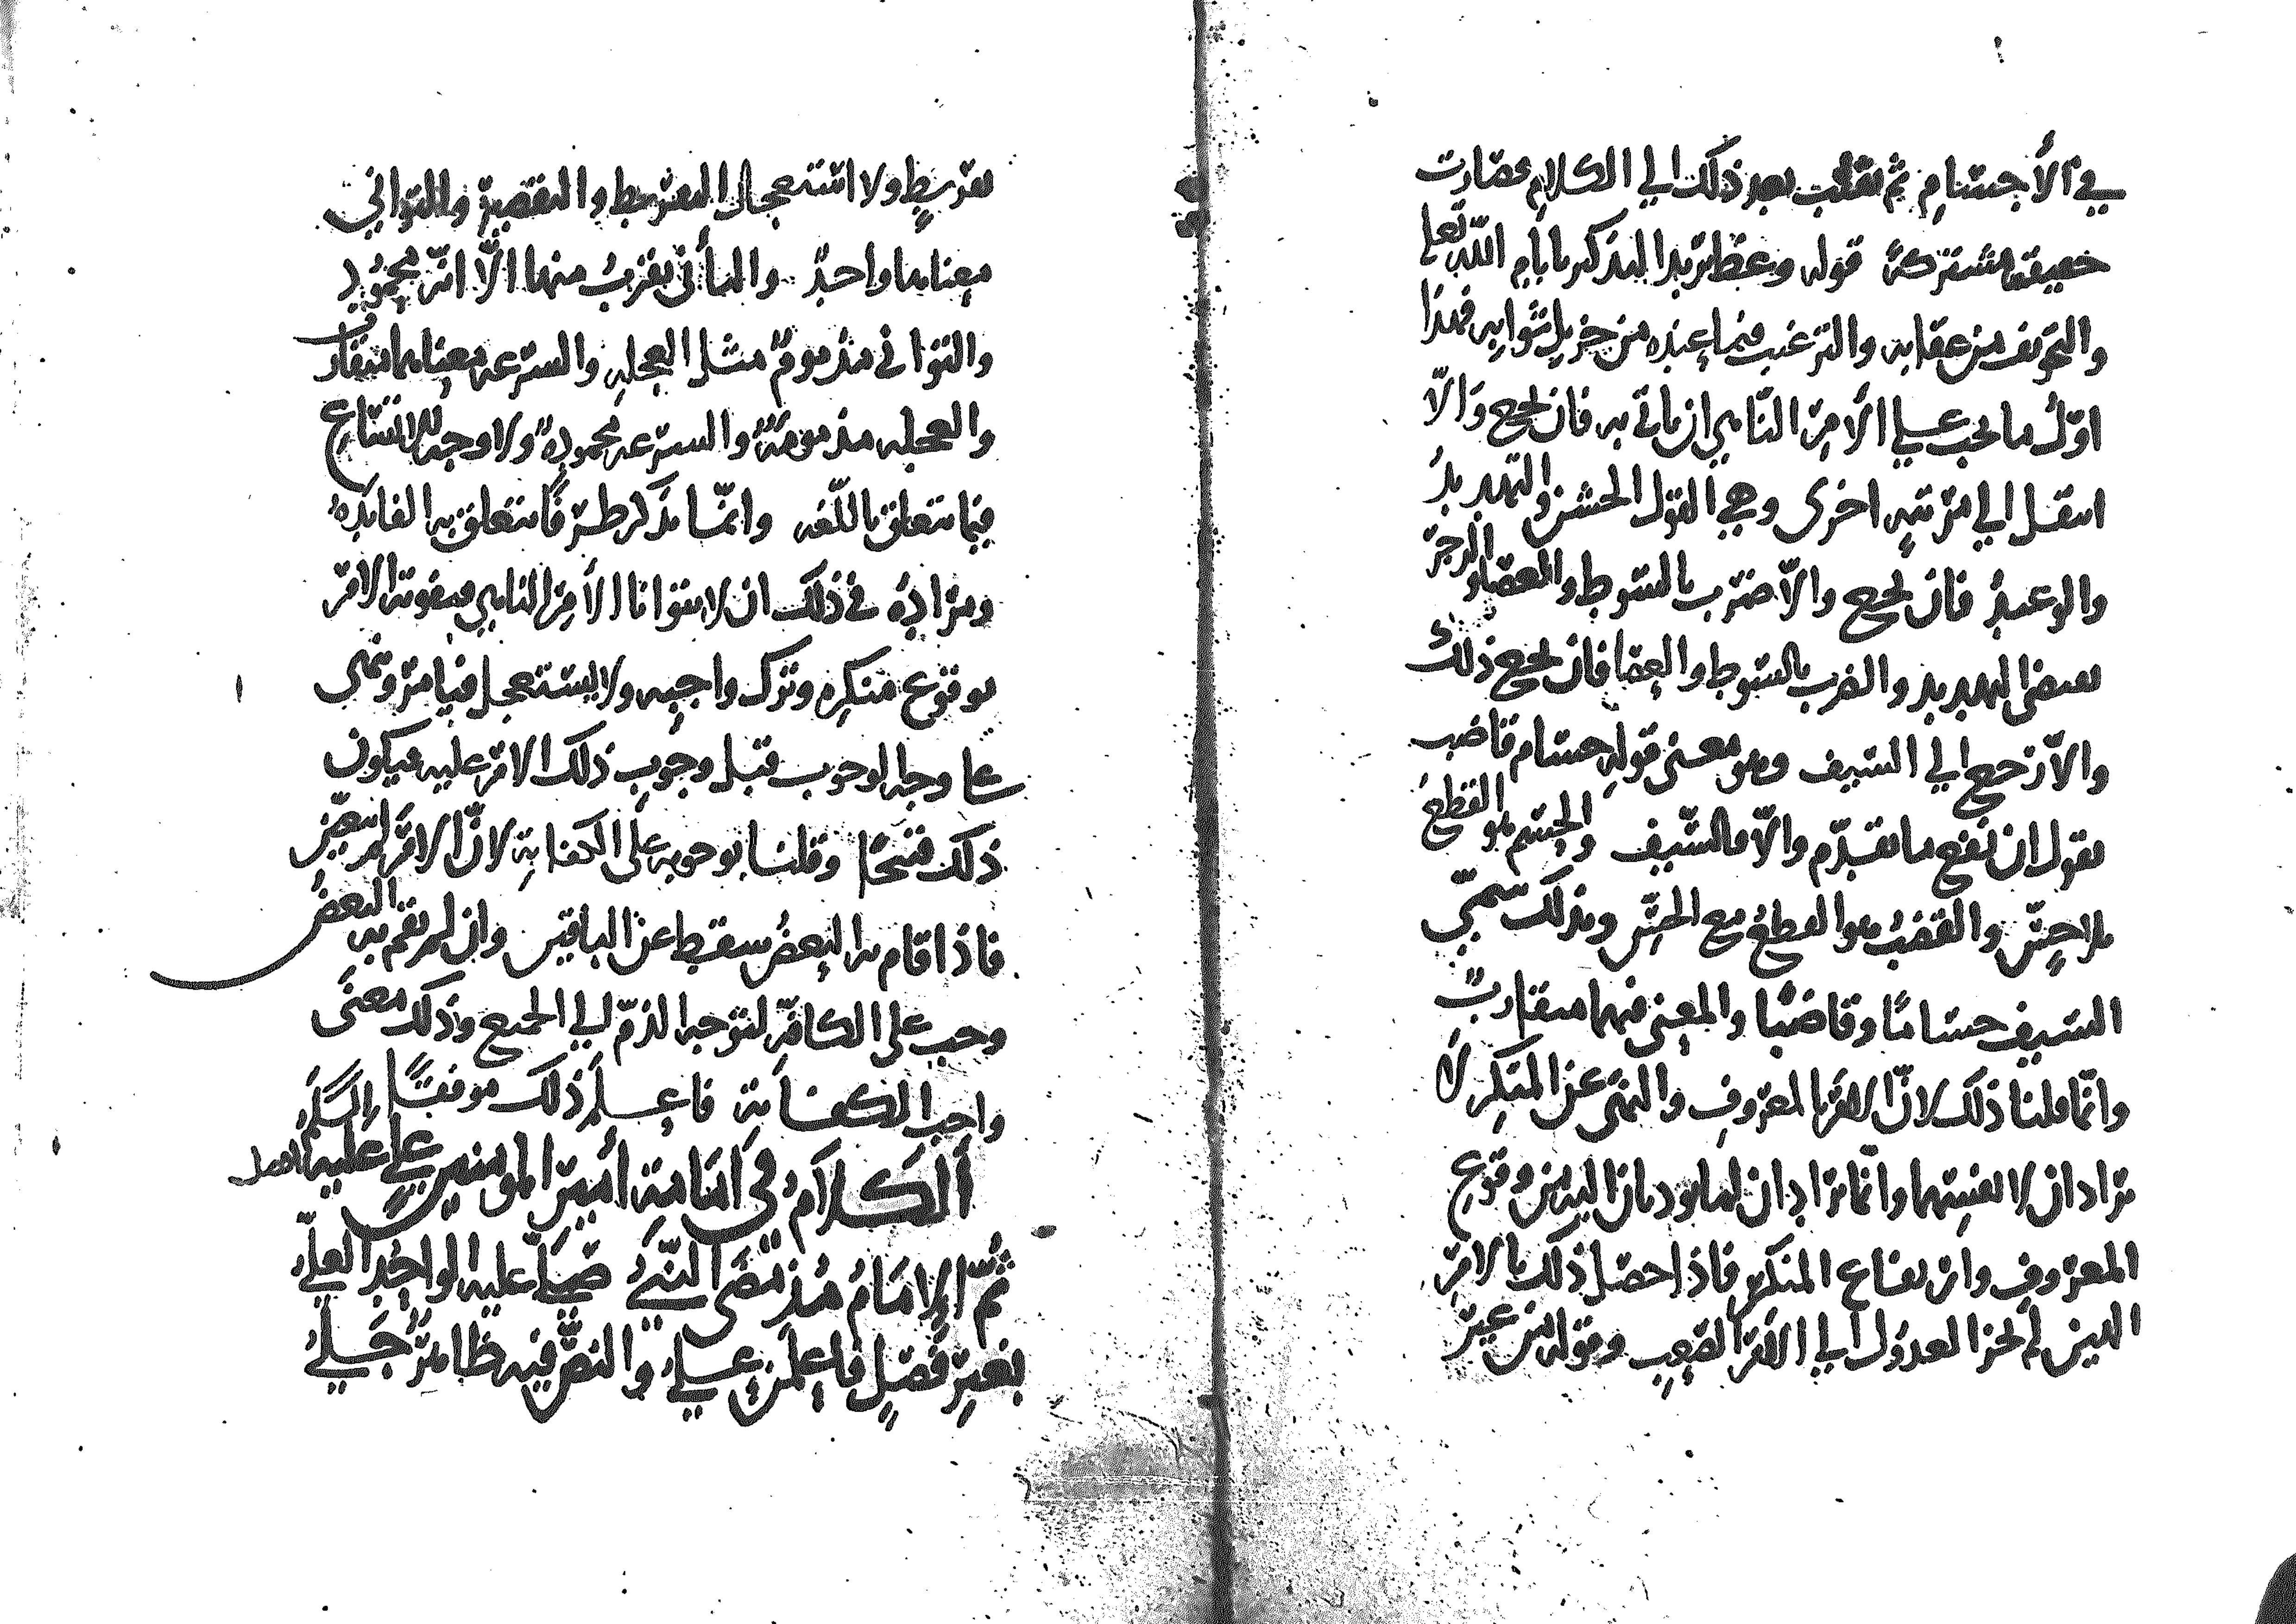 في الأجسام ثم نقلت بعد ذلك الى الكلام فصارت
حقيقة مشتركة قوله وعظ يريد التذكير بايام الله تعلى
والتخويف من عقابه والترغيب فيما عنده من جزيل ثوابه فهذا
اوّل ما يجب على الأمر الناهي ان ياتي به فان نجح والّا
انتقل الى مرتبة اخرى وهي القول الخشن والتهديد
والوعيد فان نجح والّا ضرب بالسوط والعصا والزجر
بعض التهديد والضرب بالسوط والعصا فان نجح ذلك
والّا رجع الى السيف وهو معنى قوله حسام قاضب
يقول ان نفع ما تقدّم والّا فالسّيف والحسم هو القطع
بلا حسّ والقضب هو القطع مع الحسّ وبذلك سمّي
السيف حساما وقاضبا والمعنى فيهما متقارب
وانما قلنا ذلك لانّ الامر بالمعروف والنهي عن المنكر لا
يرادان لانفسهما وانّما يرادان لما يوديان اليه من وقوع
المعروف وارتفاع المنكر فاذا حصل ذلك بالامر
اللين لم يجز العدول الى الامر الصعب وقوله من غير
تفريط ولا استعجال التفريط والتقصير والتواني
معناها واحد والتأني يقرب منها الّا انّه محمود
والتواني مذموم مثل العجلة والسرعة معناهما متقارب
والعجلة مذمومة والسرعة محمودة ولا وجه للاتساع
فيما يتعلق باللّغه وانّما نذكر طرفا يتعلق به الفايدة
ومراده في ذلك ان لا يتوانا الأمر الناهي فيفوته الامر
بوقوع منكره وترك واجبه ولا يستعجل فيامر وينهى
على وجه الوجوب قبل وجوب ذلك الامر عليه فيكون
ذلك قبيحا وقلنا بوجوبه على الكفاية لانّ الامر لم يتعيّن
فاذا قام به البعض سقط عن الباقين وان لم يقم به البعض
وجب على الكافّة لتوجه الذمّ الى الجميع وذلك معنى
واجب الكفاية فاعلم ذلك موفقا
الكلام في امامة أمير المومنين علي عليه السلم
ثمّ الإمام مذ مضى النّبيّ صلّى عليه الواحد العليّ
بغير فصل فاعلمن علي والنصّ فيه ظاهر جليّ